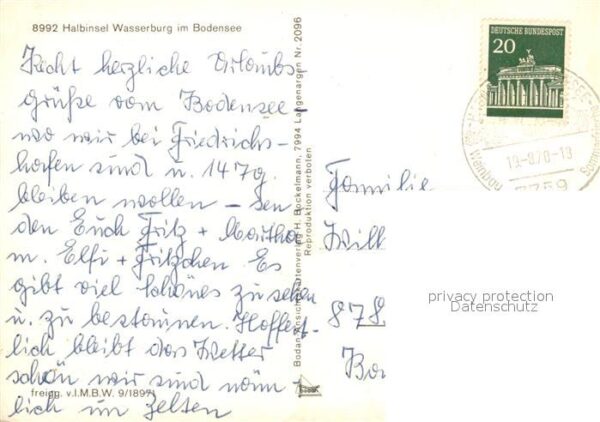 8992 Halbinsel Wasserburg im Bodensee
Recht herzliche Urlaubs-
grüße vom Bodensee,
wo wir bei Friedrichs-
hafen sind u. 14 Tg.
bleiben wollen - sen
den Euch Fritz + Martha
m. Elfi + Fritzchen. Es
gibt viel schönes zu sehen
u. zu bestaunen. Hoffent-
lich bleibt das Wetter
schön wir sind näm-
lich im Zelten
freigg. v. I.M.B.W. 9/18971
Bodan-Ansichtskartenverlag H. Bockelmann, 7994 Langenargen Nr. 2096
Reproduktion verboten
DEUTSCHE BUNDESPOST
20
Weinbau
13
7759
Familie
Will
878
privacy protection
Datenschutz